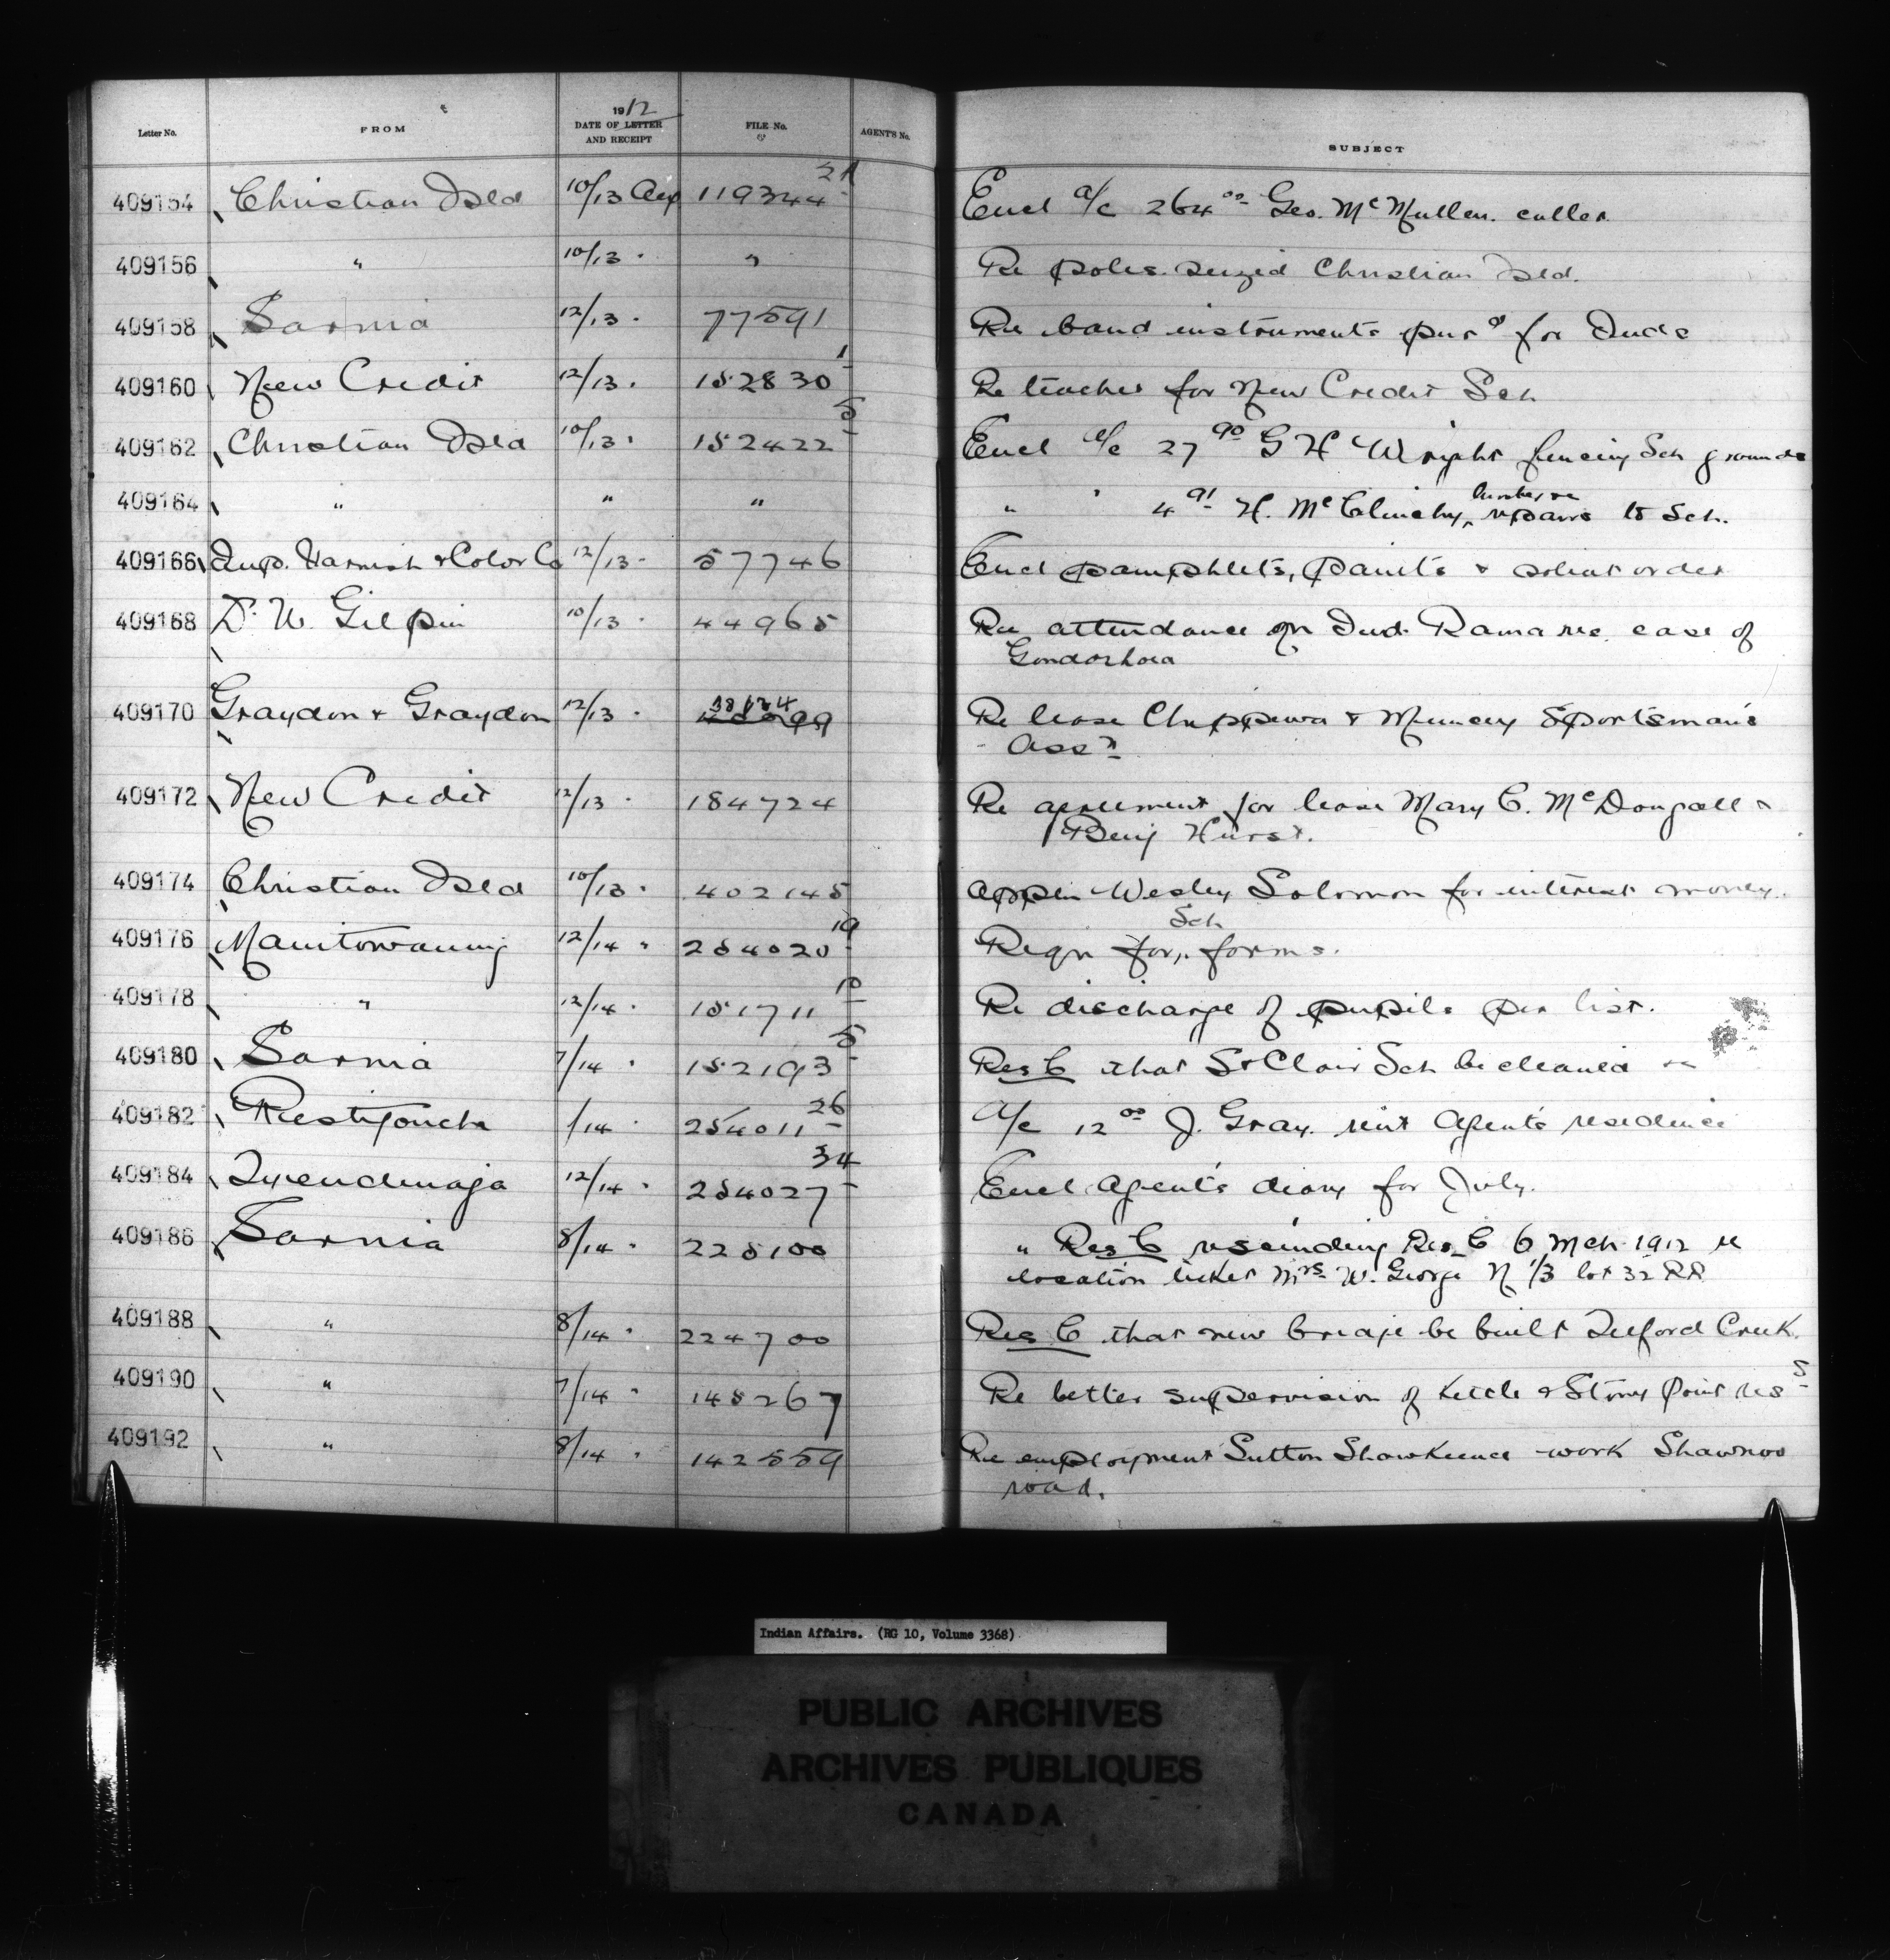 Letter No. FROM 1912 DATE OF LETTER AND RECEIPT FILE No. AGENT'S No. SUBJECT
409154 Christian Isld 10/13 Aug 119344-21 Encl a/c 264.00 Geo. McMullen. culler
409156 " 10/13 " " Re poles seized Christian Isld.
409158 Sarnia 12/13 " 77591 Re band instruments purd for Inds
409160 New Credit 12/13 " 152830-1 Re teacher for New Credit Sch
409162 Christian Isld 10/13 " 152422-5 Encl a/c 27.90 G H Wright fencing Sch grounds
409164 " " " " " 4.91 H. McClinchy, lumber re repairs to Sch.
409166 Imp. Varnish & Color Co 12/13 " 57746 Encl pamphlets, paints & solicit order
409168 D. W. Gilpin 10/13 " 44965 Re attendance on Ind. Rama res. case of
409170 Graydon & Graydon 12/13 " 38134 Re lease Chippewa & Muncey Sportsman's
Assn
409172 New Credit 12/13 " 184724 Re agreement for lease Mary C. McDougall &
Benj Hurst.
409174 Christian Isld 10/13 " 402145 Appln Wesley Solomon for interest money.
409176 Manitowaning 12/14 " 254020-19 Reqn for Sch forms.
409178 " 12/14 " 151711-10 Re discharge of pupils per list.
409180 Sarnia 7/14 " 152193-5 Res C that St Clair Sch be cleaned &c
409182 Restigouche 1/14 " 254011-26 A/c 12.00 J. Gray. rent Agent's residence
409184 Tyendinaga 12/14 " 254027-34 Encl Agent's diary for July.
409186 Sarnia 8/14 " 225100 " Res C rescinding Res C 6 Mch 1912 re
location ticket Mrs W. George N 1/3 lot 32 RR
409188 " 8/14 " 224700 Res C that new bridge be built Telford Creek.
409190 " 7/14 " 145267 Re better supervision of Kettle & Stony Point ress
409192 " 8/14 " 142559 Re employment Sutton Shawkence work Shawnoo
road.
Indian Affairs. (RG 10, Volume 3368)
PUBLIC ARCHIVES
ARCHIVES PUBLIQUES
CANADA